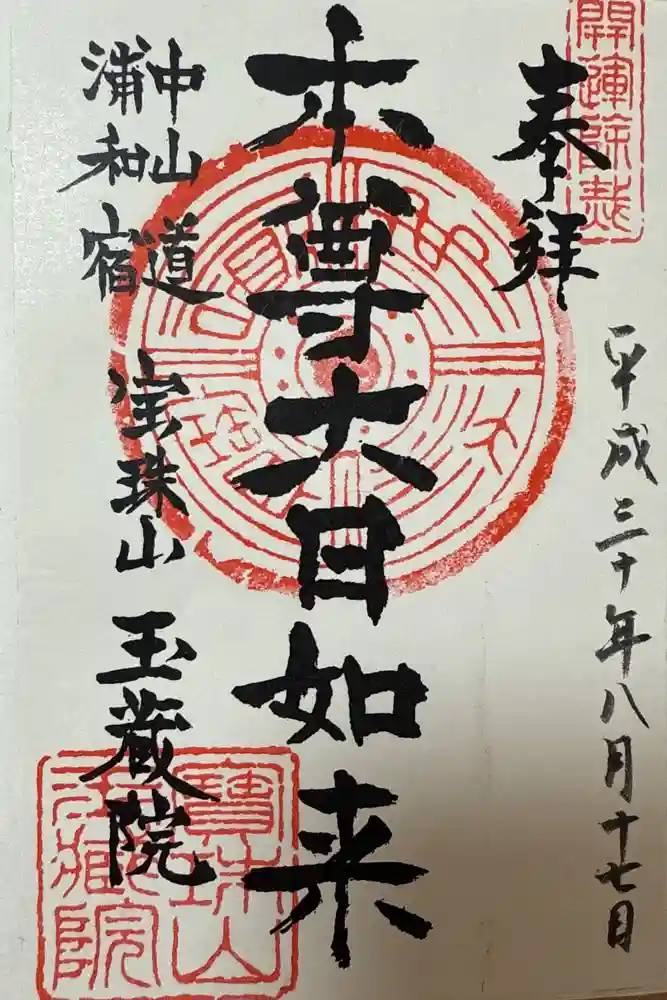 開運除裁
奉拝
平成三十年八月十七日
本尊大日如来
中山道
浦和宿
宝珠山
玉蔵院
寶珠山
玉藏院